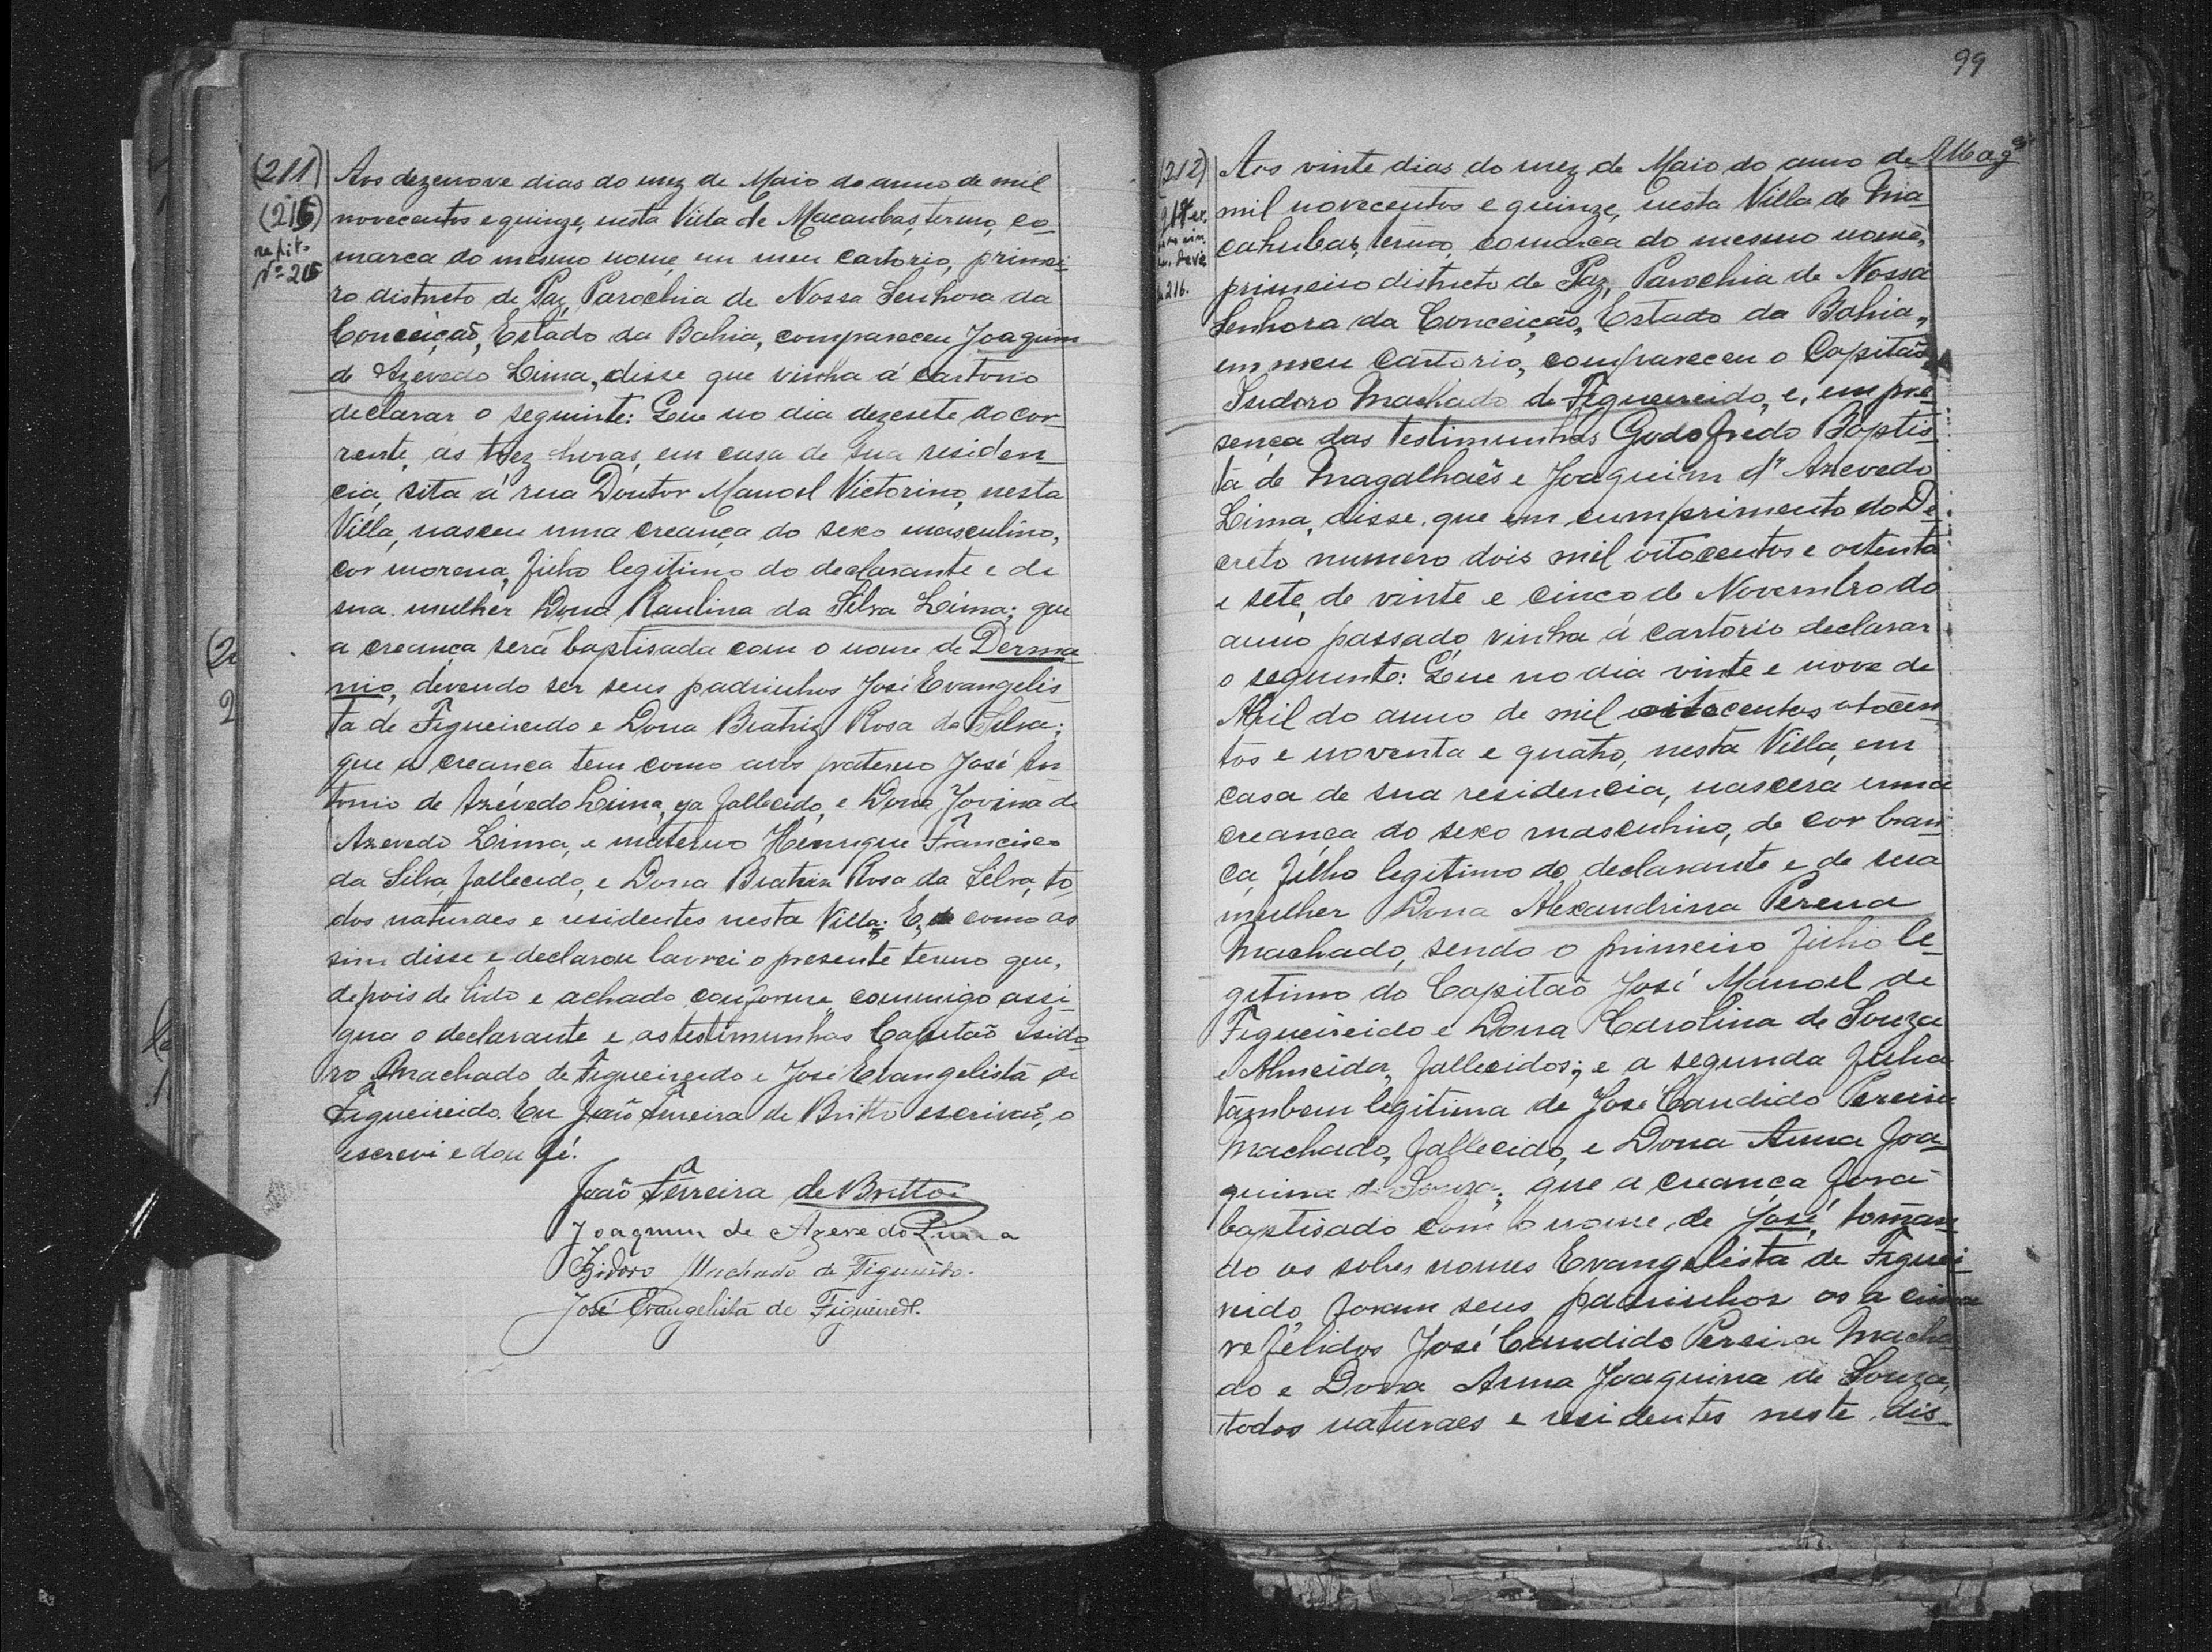 (211)
(215)
repit.
Nº 215
Aos dezenove dias do mez de Maio do anno de mil
novecentos e quinze, nesta Villa de Macaubas, termo, co-
marca do mesmo nome em meu cartorio, primei-
ro districto de Paz, Parochia de Nossa Senhora da
Conceição, Estado da Bahia, compareceu Joaquim
de Azevedo Lima, disse que vinha á cartorio
declarar o seguinte: Que no dia dezesete do cor-
rente, ás trez horas, em casa de sua residen-
cia, sita á rua Doutor Manoel Victorino, nesta
Villa, nasceu uma creança do sexo masculino,
cor morena, filho legitimo do declarante e de
sua mulher Dona Raulina da Silva Lima; que
a creança será baptisada com o nome de Derma-
nio, devendo ser seus padrinhos José Evangelis-
ta de Figueireido e Dona Beatriz Rosa da Silva;
que a creança tem como avós paterno José An-
tonio de Azevedo Lima, ja fallecido, e Dona Jovina de
Azevedo Lima, e materno Henrique Francisco
da Silva, fallecido, e Dona Beatriz Rosa da Silva, to-
dos naturaes e residentes nesta Villa. E, como as-
sim disse e declarou lavrei o presente termo que,
depois de lido e achado conforme, commigo assi-
gna o declarante e as testimunhas Capitão Isido-
ro Machado de Figueireido e José Evangelista de
Figueireido. Eu João Ferreira de Britto escrivão, o
escrevi e dou fé.
João Ferreira de Britto
Joaquim de Azevedo Lima
Izidoro Machado de Figueirêdo.
José Evangelista de Figueiredº.
99
(212)
216.
Aos vinte dias do mez de Maio do anno de
mil novecentos e quinze, nesta Villa de Ma-
cahubas, termo, comarca do mesmo nome,
primeiro districto de Paz, Parochia de Nossa
Senhora da Conceição, Estado da Bahia,
em meu cartorio, compareceu o Capitão
Isidoro Machado de Figueireido, e, em pre-
sença das testimunhas Godofredo Baptis-
ta de Magalhães e Joaquim d'Azevedo
Lima, disse, que em cumprimento do De-
creto numero dois mil oitocentos e oitenta
e sete, de vinte e cinco de Novembro do
anno passado, vinha á cartorio declarar
o seguinte: Que no dia vinte e nove de
Abril do anno de mil oitocentos oitocen-
tos e noventa e quatro, nesta Villa, em
casa de sua residencia, nascera uma
creança do sexo masculino, de cor bran-
ca, filho legitimo do declarante e de sua
mulher Dona Alexandrina Pereira
Machado, sendo o primeiro filho le-
gitimo do Capitão José Manoel de
Figueireido e Dona Carolina de Souza
e Almeida, fallecidos; e a segunda filha
tambem legitima de José Candido Pereira
Machado, fallecido, e Dona Anna Joa-
quina de Souza; que a creança fora
baptisado com o nome de José, toman-
do os sobre nomes Evangelista de Figuei-
reido, foram seus padrinhos os a cima
referidos José Candido Pereira Macha-
do e Dona Anna Joaquina de Souza,
todos naturaes e residentes neste dis-